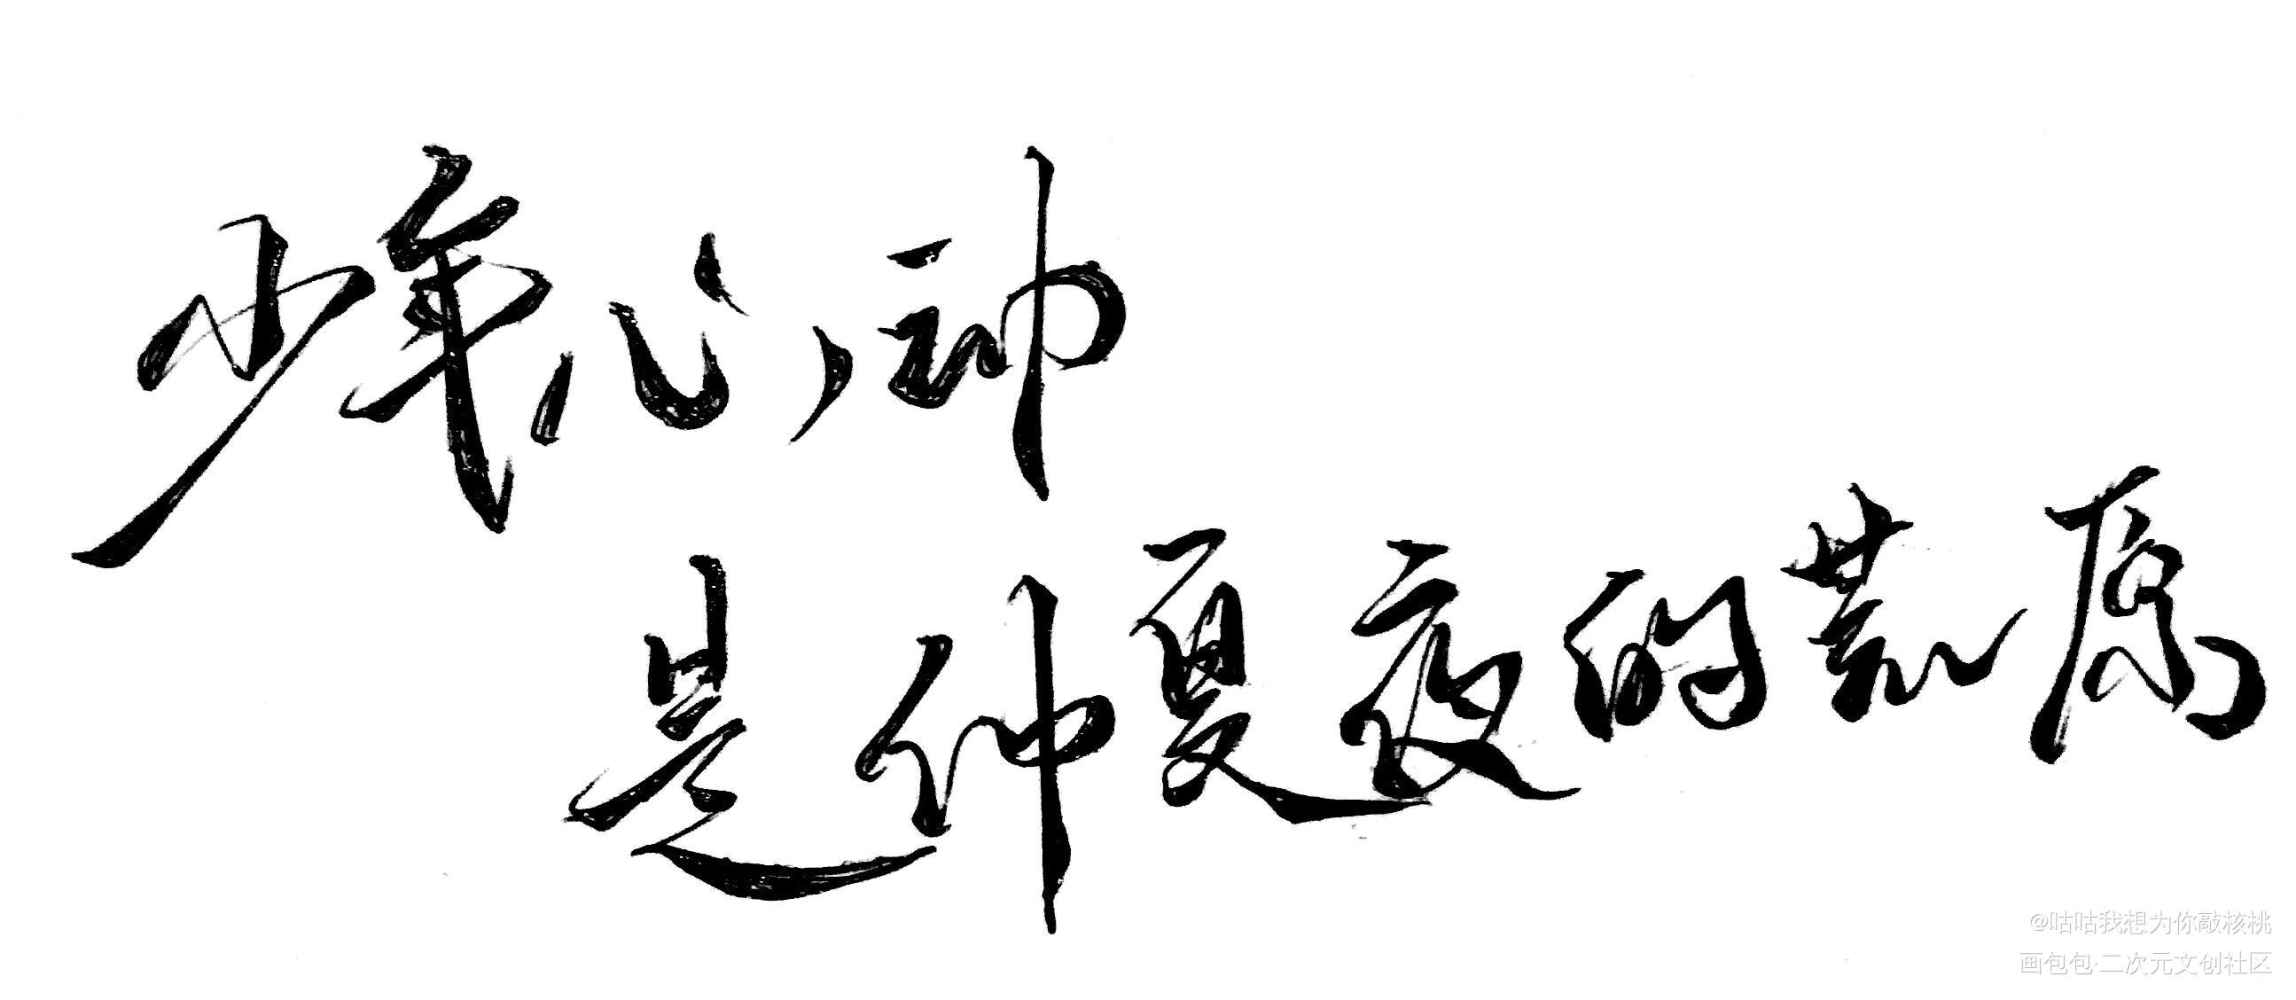 少年心动
是仲夏夜的荒原
@咕咕我想为你敲核桃
画包包·二次元文创社区